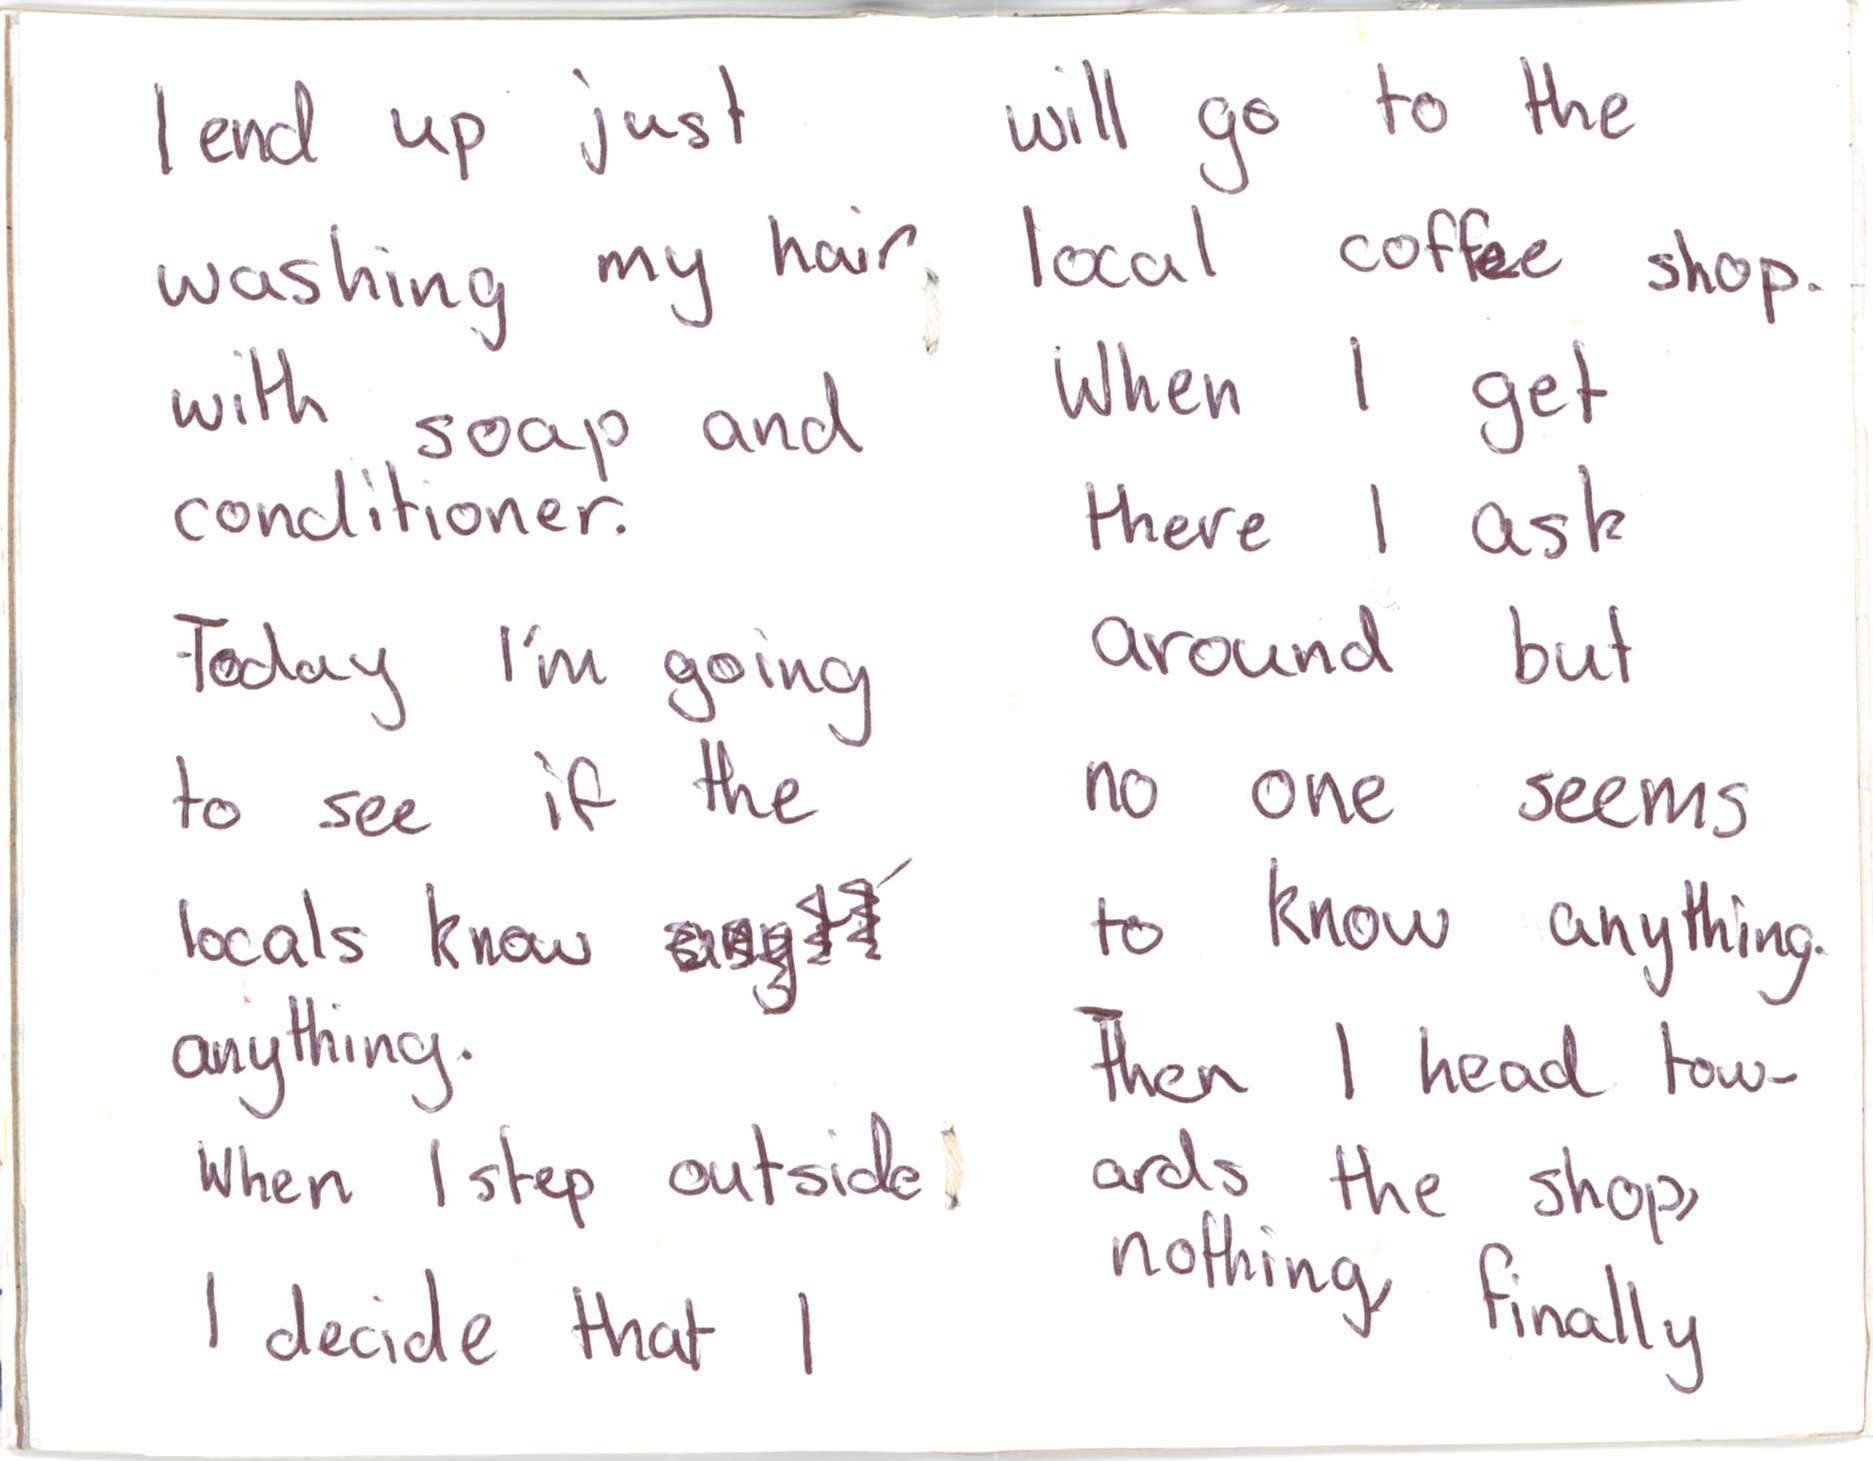 I end up just
washing my hair,
with soap and
conditioner.
Today I'm going
to see if the
locals know
anything.
When I step outside
I decide that I
will go to the
local coffee shop.
When I get
there I ask
around but
no one seems
to know anything.
Then I head tow-
ards the shop,
nothing, finally